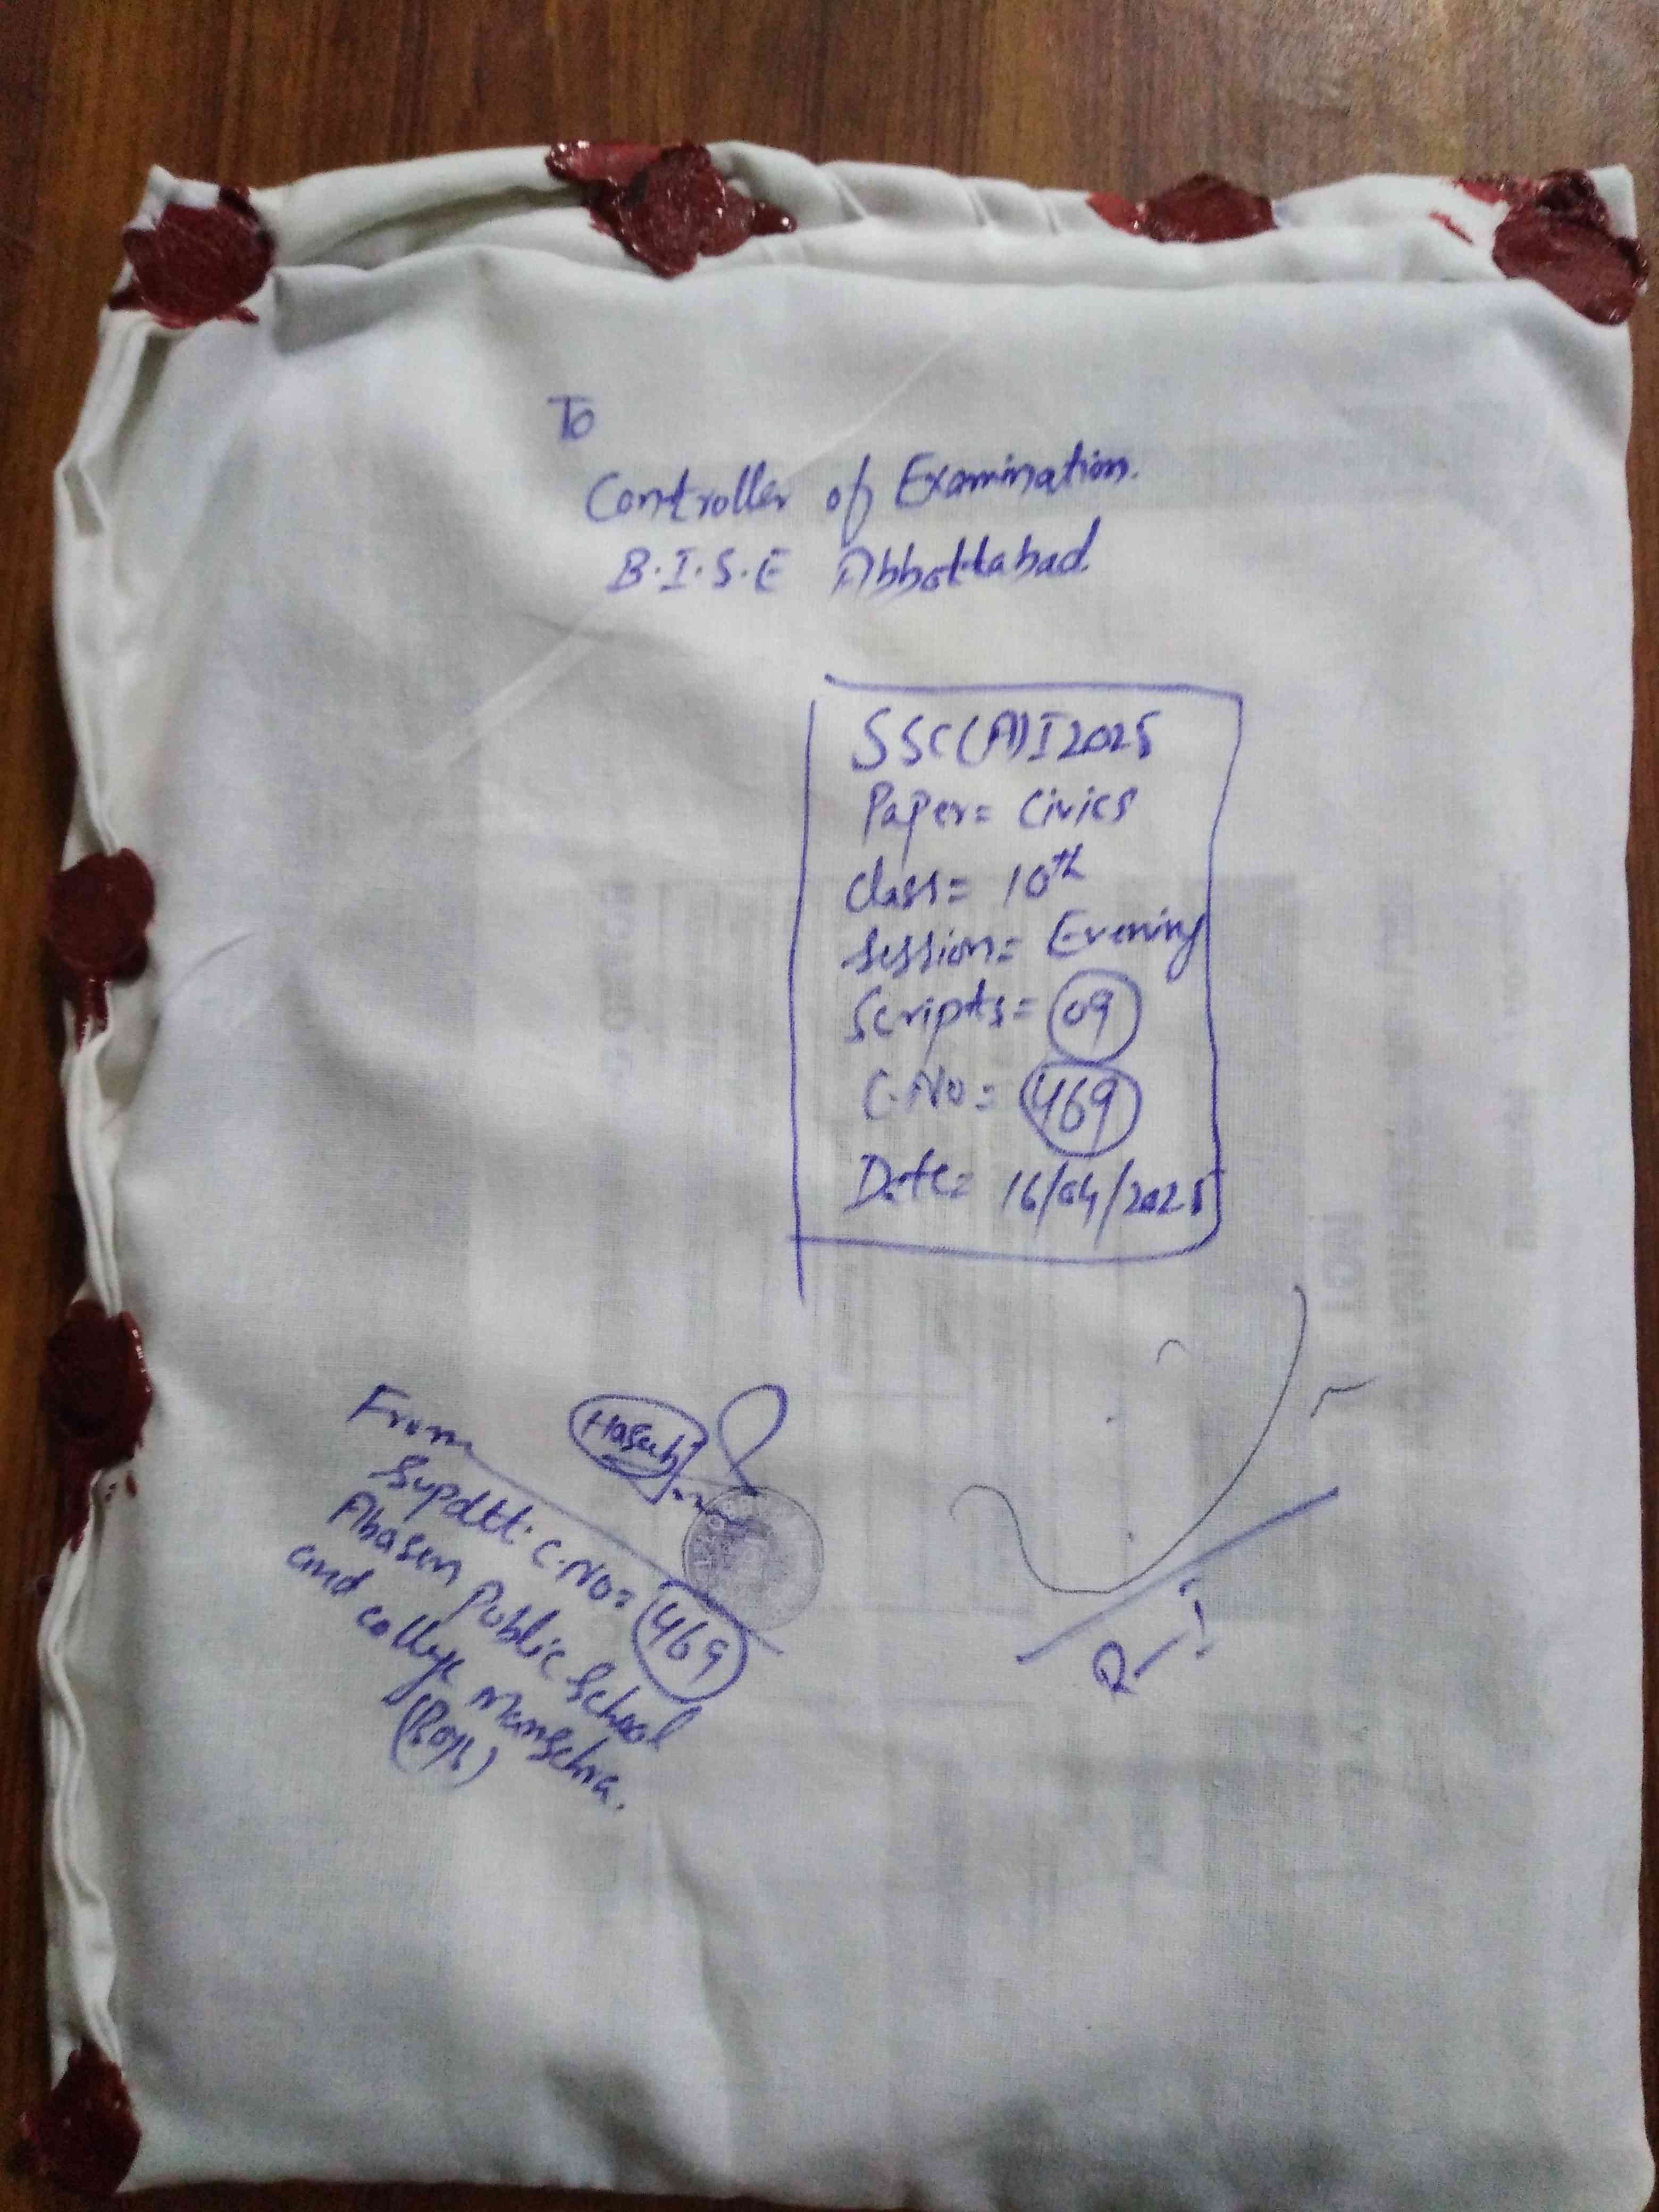 To
Controller of Examination.
B.I.S.E Abbottabad
SSC(A)I2025
Paper= Civics
Class= 10th
Session= Evening
Scripts= 09
C.No= 469
Date= 16/04/2025
From
Haseeb
Supdtt. C.No= 469
Abasen Public School
and college Mansehra.
(Boys)